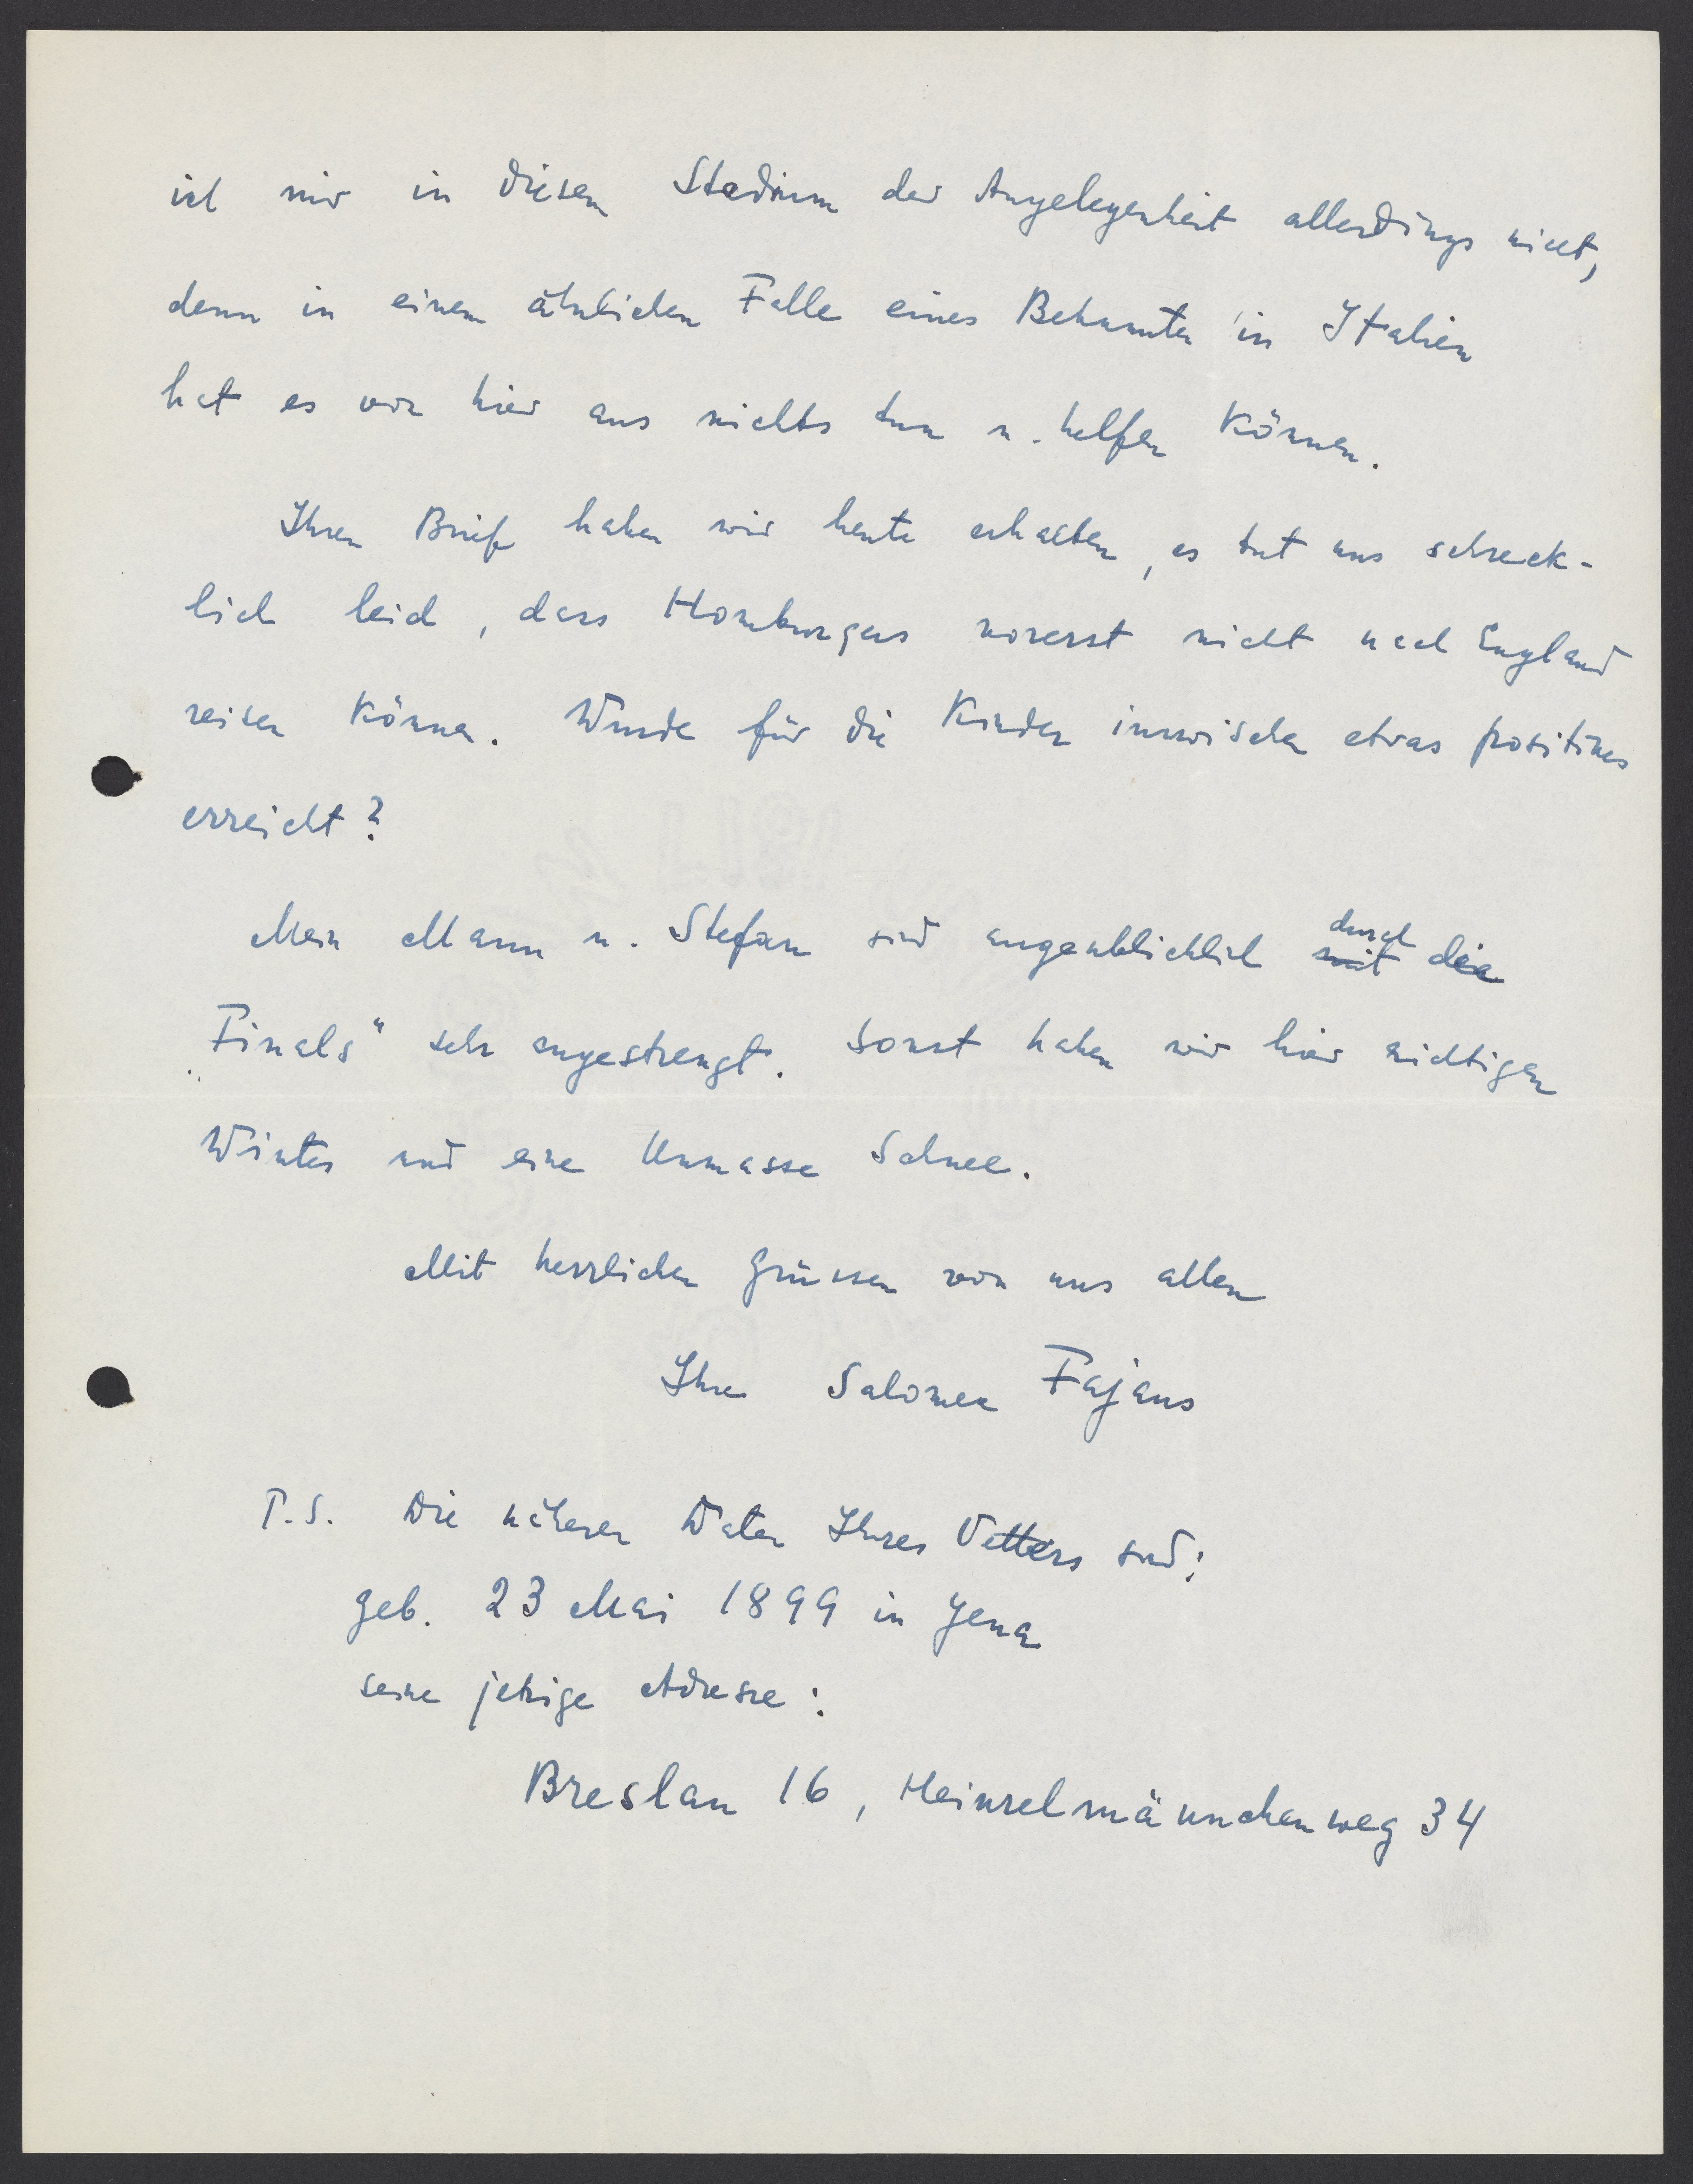 ist mir in diesem Stadium der Angelegenheit allerdings nicht,
denn in einem ähnlichen Falle eines Bekannten in Italien
hat es von hier aus nichts tun u. helfen können.
Ihren Brief haben wir heute erhalten, es tut uns schreck-
lich leid, dass Homburgers vorerst nicht nach England
reisen können. Wurde für die Kinder inzwischen etwas positives
erreicht?
Mein Mann u. Stefan sind augenblicklich mit durch die
„Finals" sehr angestrengt. Sonst haben wir hier richtigen
Winter und eine Unmasse Schnee.
Mit herzlichen Grüssen von uns allen
Ihre Salomea Fajans
P.S. Die näheren Daten Ihres Vetters sind:
geb. 23 Mai 1899 in Jena
seine jetzige Adresse:
Breslau 16, Heinzelmännchenweg 34